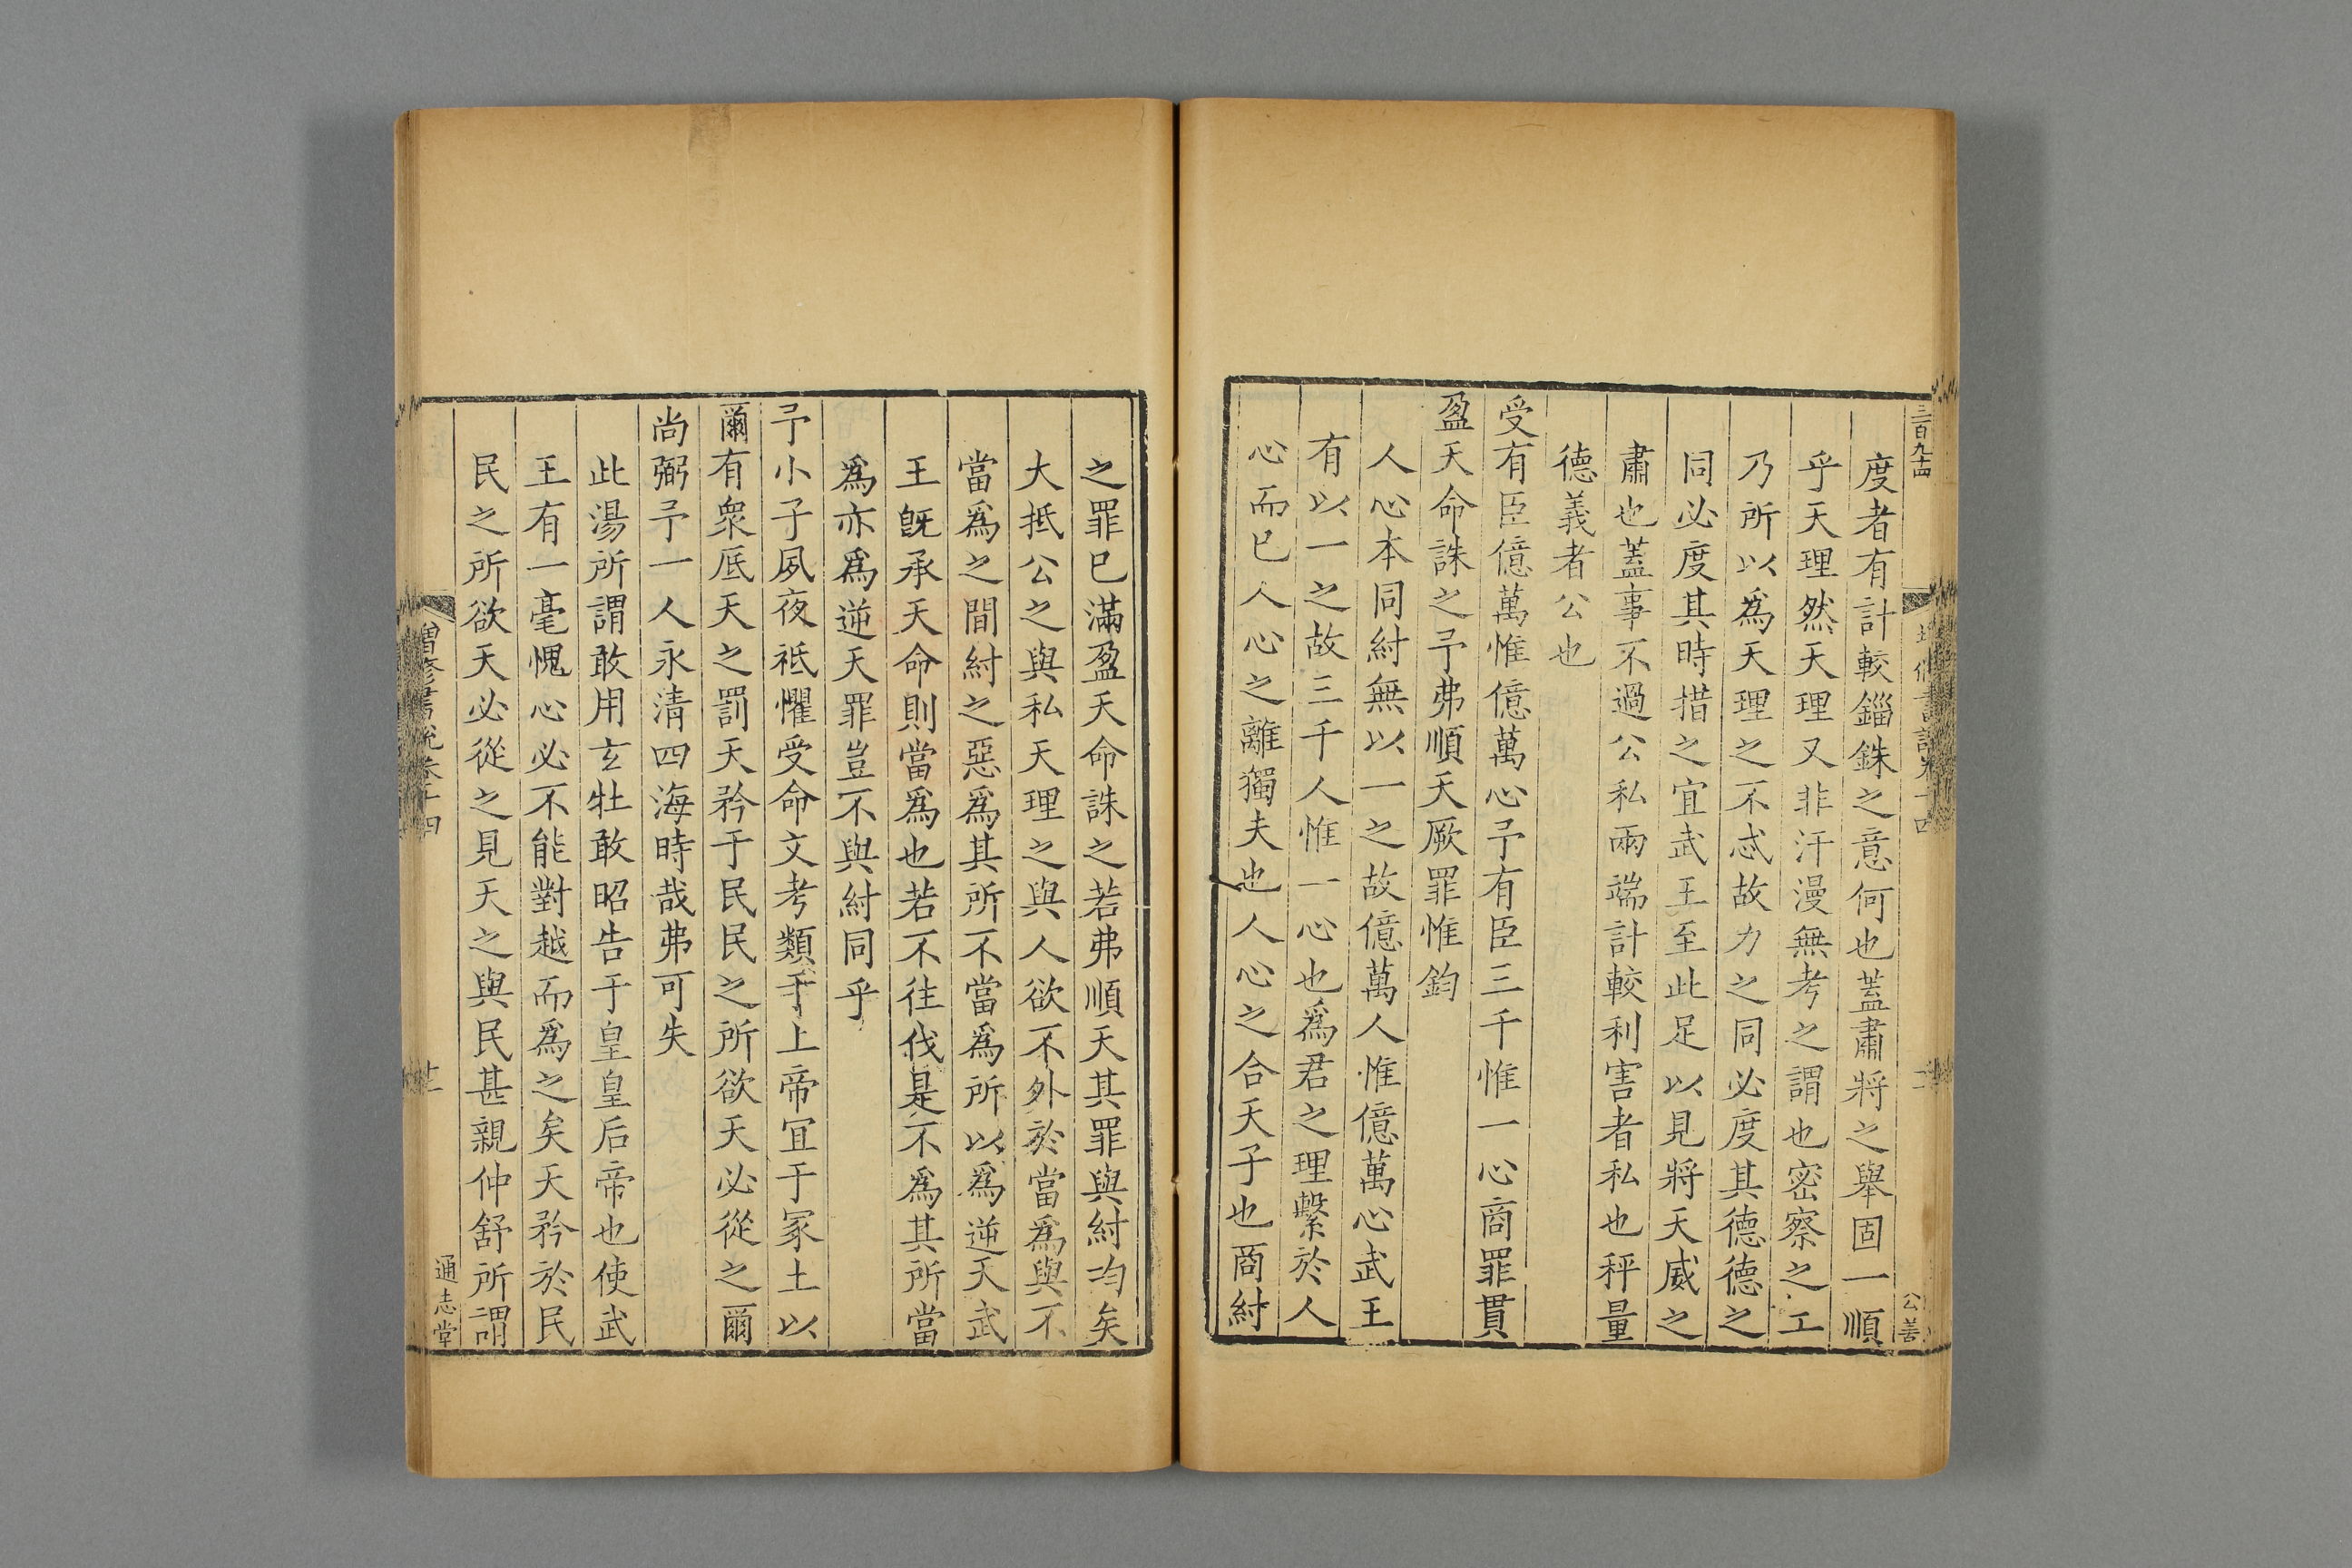 三百九十四
公善
度者有計較錙銖之意何也蓋肅將之舉固一順
乎天理然天理又非汗漫無考之謂也密察之工
乃所以爲天理之不忒故力之同必度其德德之
同必度其時措之宜武王至此足以見將天威之
肅也蓋事不過公私兩端計較利害者私也秤量
德義者公也
受有臣億萬惟億萬心予有臣三千惟一心商罪貫
盈天命誅之予弗順天厥罪惟鈞
人心本同紂無以一之故億萬人惟億萬心武王
有以一之故三千人惟一心也爲君之理繫於人
心而已人心之離獨夫也人心之合天子也商紂
之罪已滿盈天命誅之若弗順天其罪與紂均矣
大抵公之與私天理之與人欲不外於當爲與不
當爲之間紂之惡爲其所不當爲所以爲逆天武
王旣承天命則當爲也若不往伐是不爲其所當
爲亦爲逆天罪豈不與紂同乎
予小子夙夜祗懼受命文考類于上帝宜于冢土以
爾有衆厎天之罰天矜于民民之所欲天必從之爾
尚弼予一人永清四海時哉弗可失
此湯所謂敢用玄牡敢昭告于皇皇后帝也使武
王有一毫愧心必不能對越而爲之矣天矜於民
民之所欲天必從之見天之與民甚親仲舒所謂
增修書說卷十四
十二
通志堂